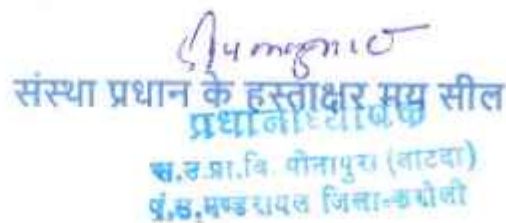 संस्था प्रधान के हस्ताक्षर मय सील
प्रधानाध्यापक
रा.उ.प्रा.वि. पोनापुरा (बाटदा)
पं.स.मण्डरायल जिला-करौली